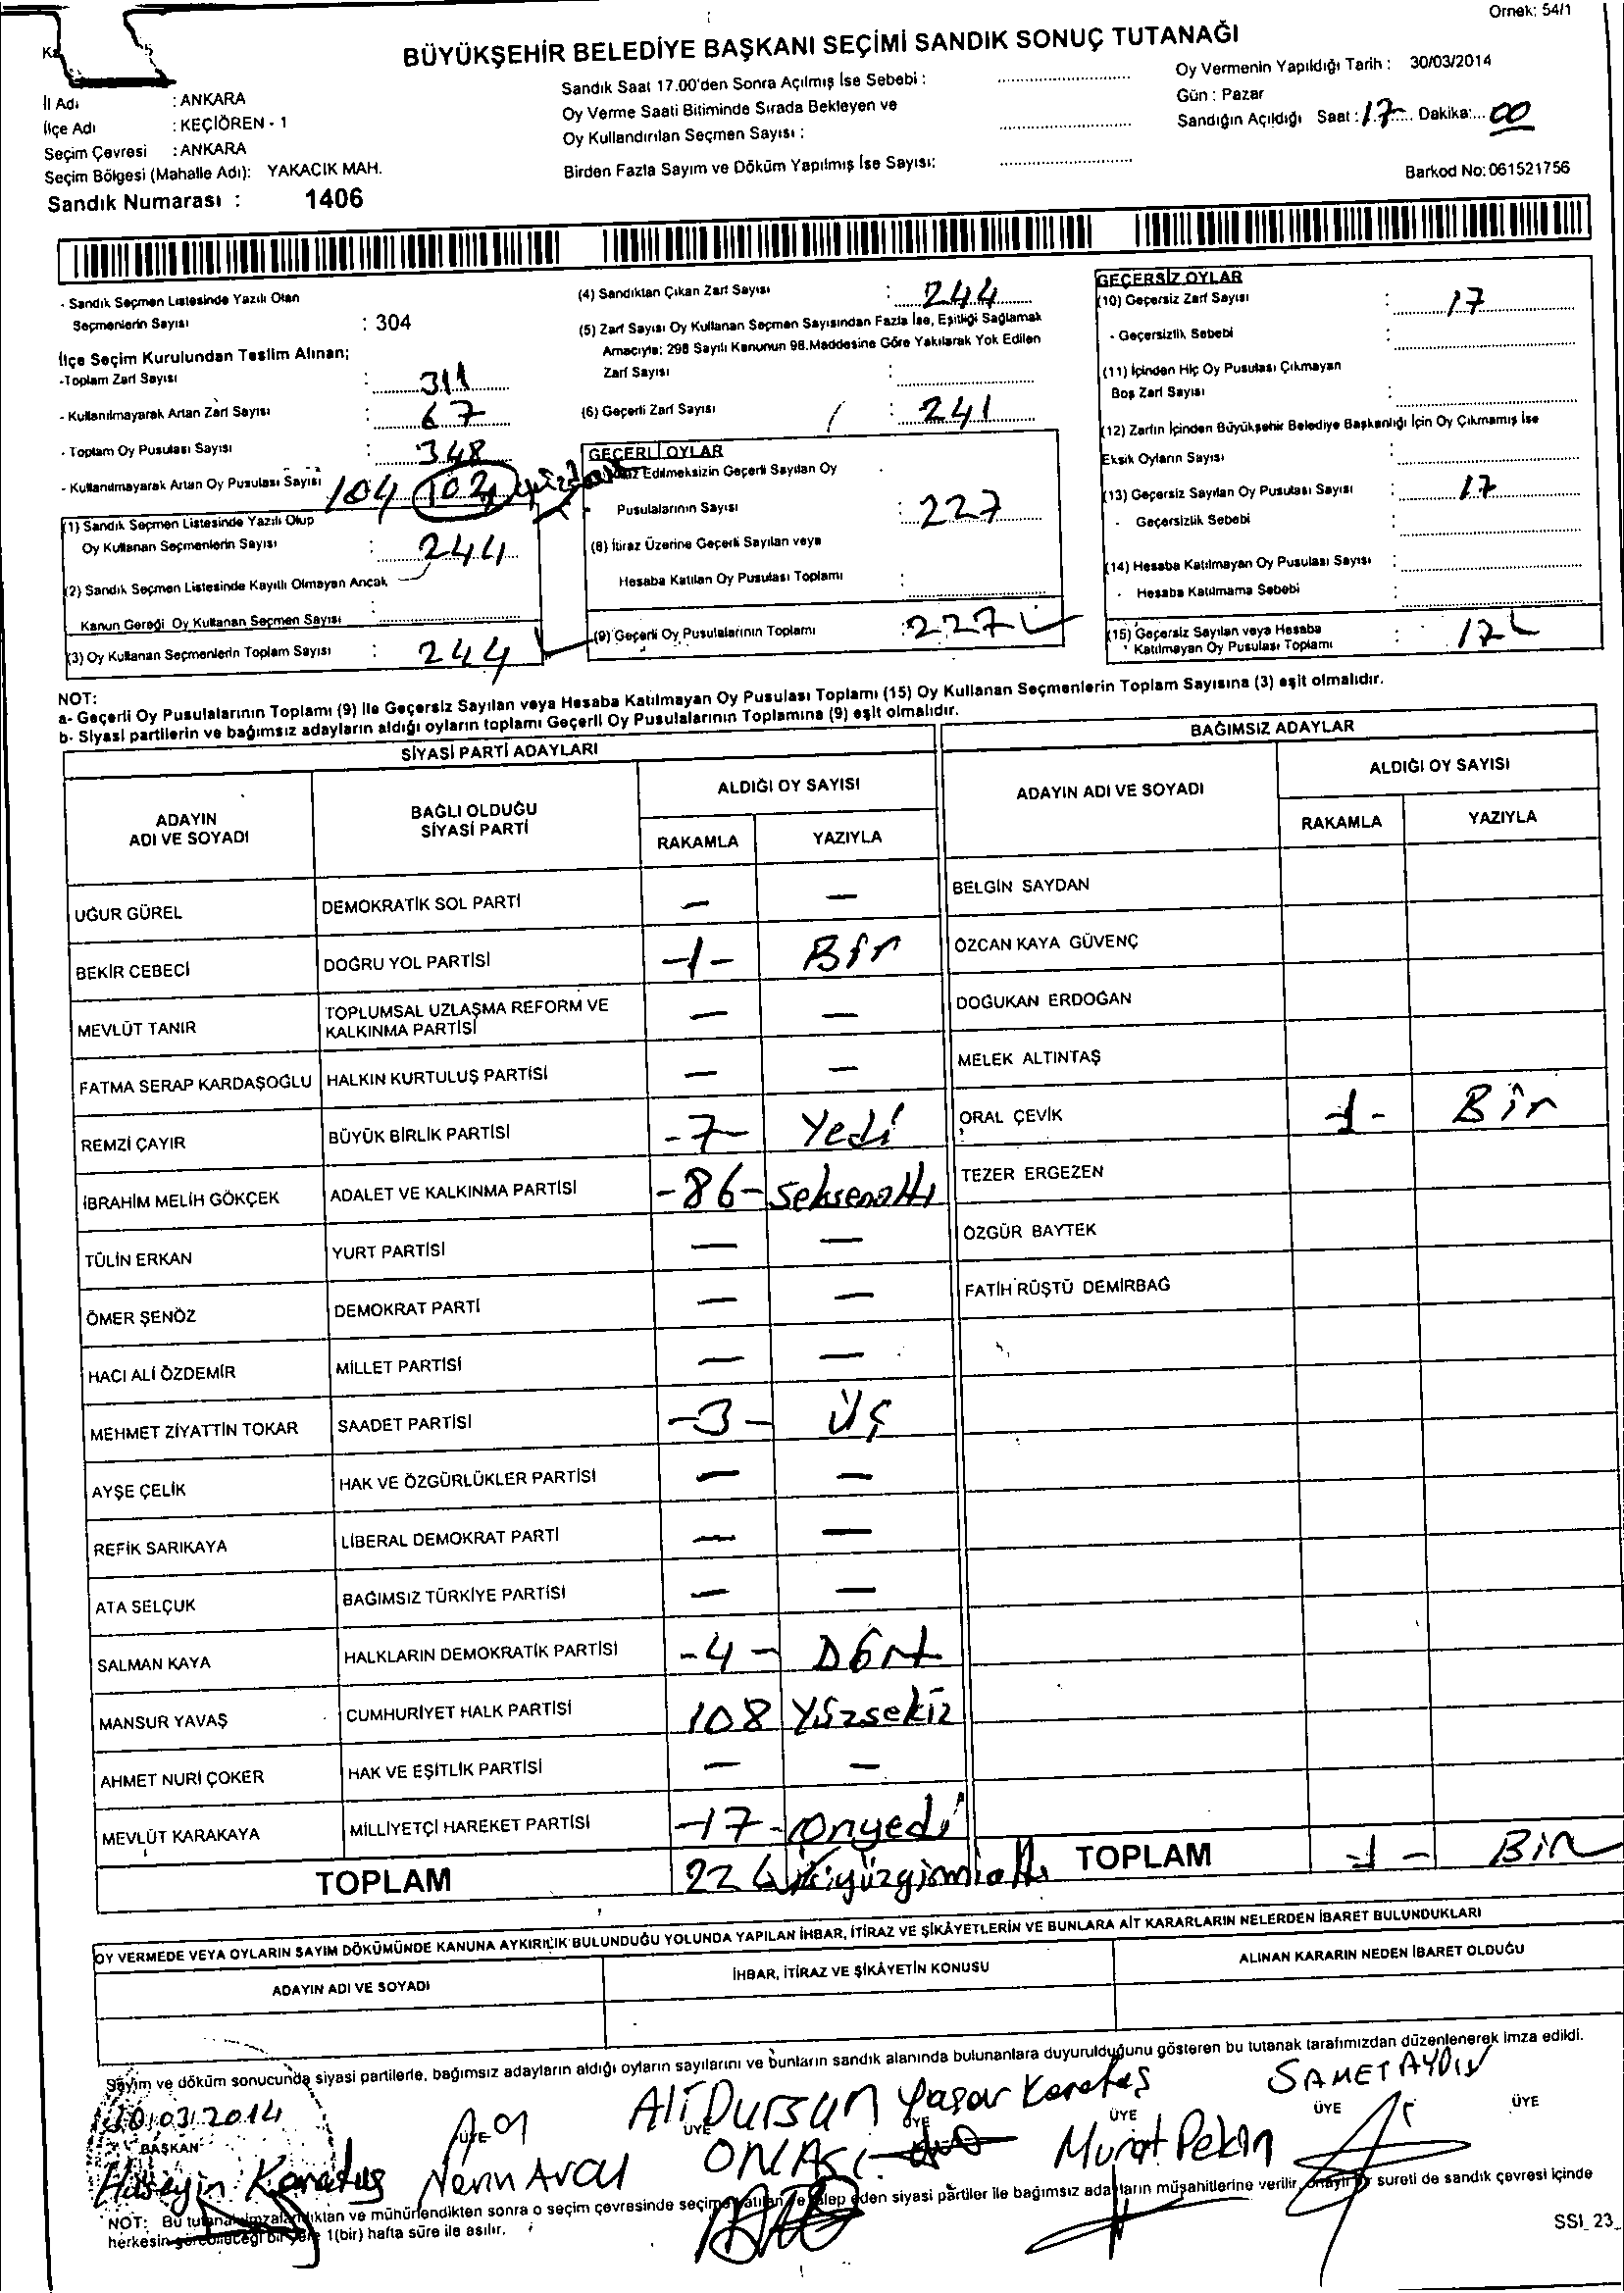 Örnek: 54/1
BÜYÜKŞEHİR BELEDİYE BAŞKANI SEÇİMİ SANDIK SONUÇ TUTANAĞI
İl Adı : ANKARA
İlçe Adı : KEÇİÖREN - 1
Seçim Çevresi : ANKARA
Seçim Bölgesi (Mahalle Adı): YAKACIK MAH.
Sandık Numarası : 1406
Sandık Saat 17.00'den Sonra Açılmış İse Sebebi :
Oy Verme Saati Bitiminde Sırada Bekleyen ve
Oy Kullandırılan Seçmen Sayısı :
Birden Fazla Sayım ve Döküm Yapılmış İse Sayısı:
Oy Vermenin Yapıldığı Tarih : 30/03/2014
Gün : Pazar
Sandığın Açıldığı Saat : 17 Dakika: 00
Barkod No: 061521756
- Sandık Seçmen Listesinde Yazılı Olan
Seçmenlerin Sayısı : 304
İlçe Seçim Kurulundan Teslim Alınan;
-Toplam Zarf Sayısı : 311
- Kullanılmayarak Artan Zarf Sayısı : 67
- Toplam Oy Pusulası Sayısı : 348
- Kullanılmayarak Artan Oy Pusulası Sayısı 104
(1) Sandık Seçmen Listesinde Yazılı Olup
Oy Kullanan Seçmenlerin Sayısı : 244
(2) Sandık Seçmen Listesinde Kayıtlı Olmayan Ancak
Kanun Gereği Oy Kullanan Seçmen Sayısı :
(3) Oy Kullanan Seçmenlerin Toplam Sayısı : 244
(4) Sandıktan Çıkan Zarf Sayısı : 244
(5) Zarf Sayısı Oy Kullanan Seçmen Sayısından Fazla İse, Eşitliği Sağlamak
Amacıyla; 298 Sayılı Kanunun 98.Maddesine Göre Yakılarak Yok Edilen
Zarf Sayısı :
(6) Geçerli Zarf Sayısı : 241
GEÇERLİ OYLAR
Edilmeksizin Geçerli Sayılan Oy
Pusulalarının Sayısı : 227
(8) İtiraz Üzerine Geçerli Sayılan veya
Hesaba Katılan Oy Pusulası Toplamı :
(9) Geçerli Oy Pusulalarının Toplamı : 227
GEÇERSİZ OYLAR
(10) Geçersiz Zarf Sayısı : 17
- Geçersizlik Sebebi :
(11) İçinden Hiç Oy Pusulası Çıkmayan
Boş Zarf Sayısı :
(12) Zarfın İçinden Büyükşehir Belediye Başkanlığı İçin Oy Çıkmamış İse
Eksik Oyların Sayısı :
(13) Geçersiz Sayılan Oy Pusulası Sayısı : 17
- Geçersizlik Sebebi :
(14) Hesaba Katılmayan Oy Pusulası Sayısı :
- Hesaba Katılmama Sebebi :
(15) Geçersiz Sayılan veya Hesaba
Katılmayan Oy Pusulası Toplamı : 17
NOT:
a- Geçerli Oy Pusulalarının Toplamı (9) ile Geçersiz Sayılan veya Hesaba Katılmayan Oy Pusulası Toplamı (15) Oy Kullanan Seçmenlerin Toplam Sayısına (3) eşit olmalıdır.
b- Siyasi partilerin ve bağımsız adayların aldığı oyların toplamı Geçerli Oy Pusulalarının Toplamına (9) eşit olmalıdır.
SİYASİ PARTİ ADAYLARI
ADAYIN ADI VE SOYADI BAĞLI OLDUĞU SİYASİ PARTİ ALDIĞI OY SAYISI
RAKAMLA YAZIYLA
UĞUR GÜREL DEMOKRATİK SOL PARTİ — —
BEKİR CEBECİ DOĞRU YOL PARTİSİ -1- Bir
MEVLÜT TANIR TOPLUMSAL UZLAŞMA REFORM VE KALKINMA PARTİSİ — —
FATMA SERAP KARDAŞOĞLU HALKIN KURTULUŞ PARTİSİ — —
REMZİ ÇAYIR BÜYÜK BİRLİK PARTİSİ -7- Yedi
İBRAHİM MELİH GÖKÇEK ADALET VE KALKINMA PARTİSİ -86- Seksenaltı
TÜLİN ERKAN YURT PARTİSİ — —
ÖMER ŞENÖZ DEMOKRAT PARTİ — —
HACI ALİ ÖZDEMİR MİLLET PARTİSİ — —
MEHMET ZİYATTİN TOKAR SAADET PARTİSİ -3- Üç
AYŞE ÇELİK HAK VE ÖZGÜRLÜKLER PARTİSİ — —
REFİK SARIKAYA LİBERAL DEMOKRAT PARTİ — —
ATA SELÇUK BAĞIMSIZ TÜRKİYE PARTİSİ — —
SALMAN KAYA HALKLARIN DEMOKRATİK PARTİSİ -4- Dört
MANSUR YAVAŞ CUMHURİYET HALK PARTİSİ 108 Yüzsekiz
AHMET NURİ ÇOKER HAK VE EŞİTLİK PARTİSİ — —
MEVLÜT KARAKAYA MİLLİYETÇİ HAREKET PARTİSİ -17- Onyedi
TOPLAM 226
BAĞIMSIZ ADAYLAR
ADAYIN ADI VE SOYADI ALDIĞI OY SAYISI
RAKAMLA YAZIYLA
BELGİN SAYDAN
ÖZCAN KAYA GÜVENÇ
DOĞUKAN ERDOĞAN
MELEK ALTINTAŞ
ORAL ÇEVİK -1- Bir
TEZER ERGEZEN
ÖZGÜR BAYTEK
FATİH RÜŞTÜ DEMİRBAĞ
TOPLAM -1- Bir
OY VERMEDE VEYA OYLARIN SAYIM DÖKÜMÜNDE KANUNA AYKIRILIK BULUNDUĞU YOLUNDA YAPILAN İHBAR, İTİRAZ VE ŞİKÂYETLERİN VE BUNLARA AİT KARARLARIN NELERDEN İBARET BULUNDUKLARI
ADAYIN ADI VE SOYADI İHBAR, İTİRAZ VE ŞİKÂYETİN KONUSU ALINAN KARARIN NEDEN İBARET OLDUĞU
Sayım ve döküm sonucunda siyasi partilerle, bağımsız adayların aldığı oyların sayılarını ve bunların sandık alanında bulunanlara duyurulduğunu gösteren bu tutanak tarafımızdan düzenlenerek imza edildi.
30.03.2014
BAŞKAN ÜYE ÜYE ÜYE ÜYE ÜYE ÜYE
Hüseyin Karataş
Nevin Avcı
Ali Dursun
Yaşar Karataş
Murat Pekin
SAMET AYDIN
NOT: Bu tutanak imzalandıktan ve mühürlendikten sonra o seçim çevresinde seçime katılan ve talep eden siyasi partiler ile bağımsız adayların müşahitlerine verilir, onaylı bir sureti de sandık çevresi içinde
herkesin görebileceği bir yere 1(bir) hafta süre ile asılır.
SSI_23_